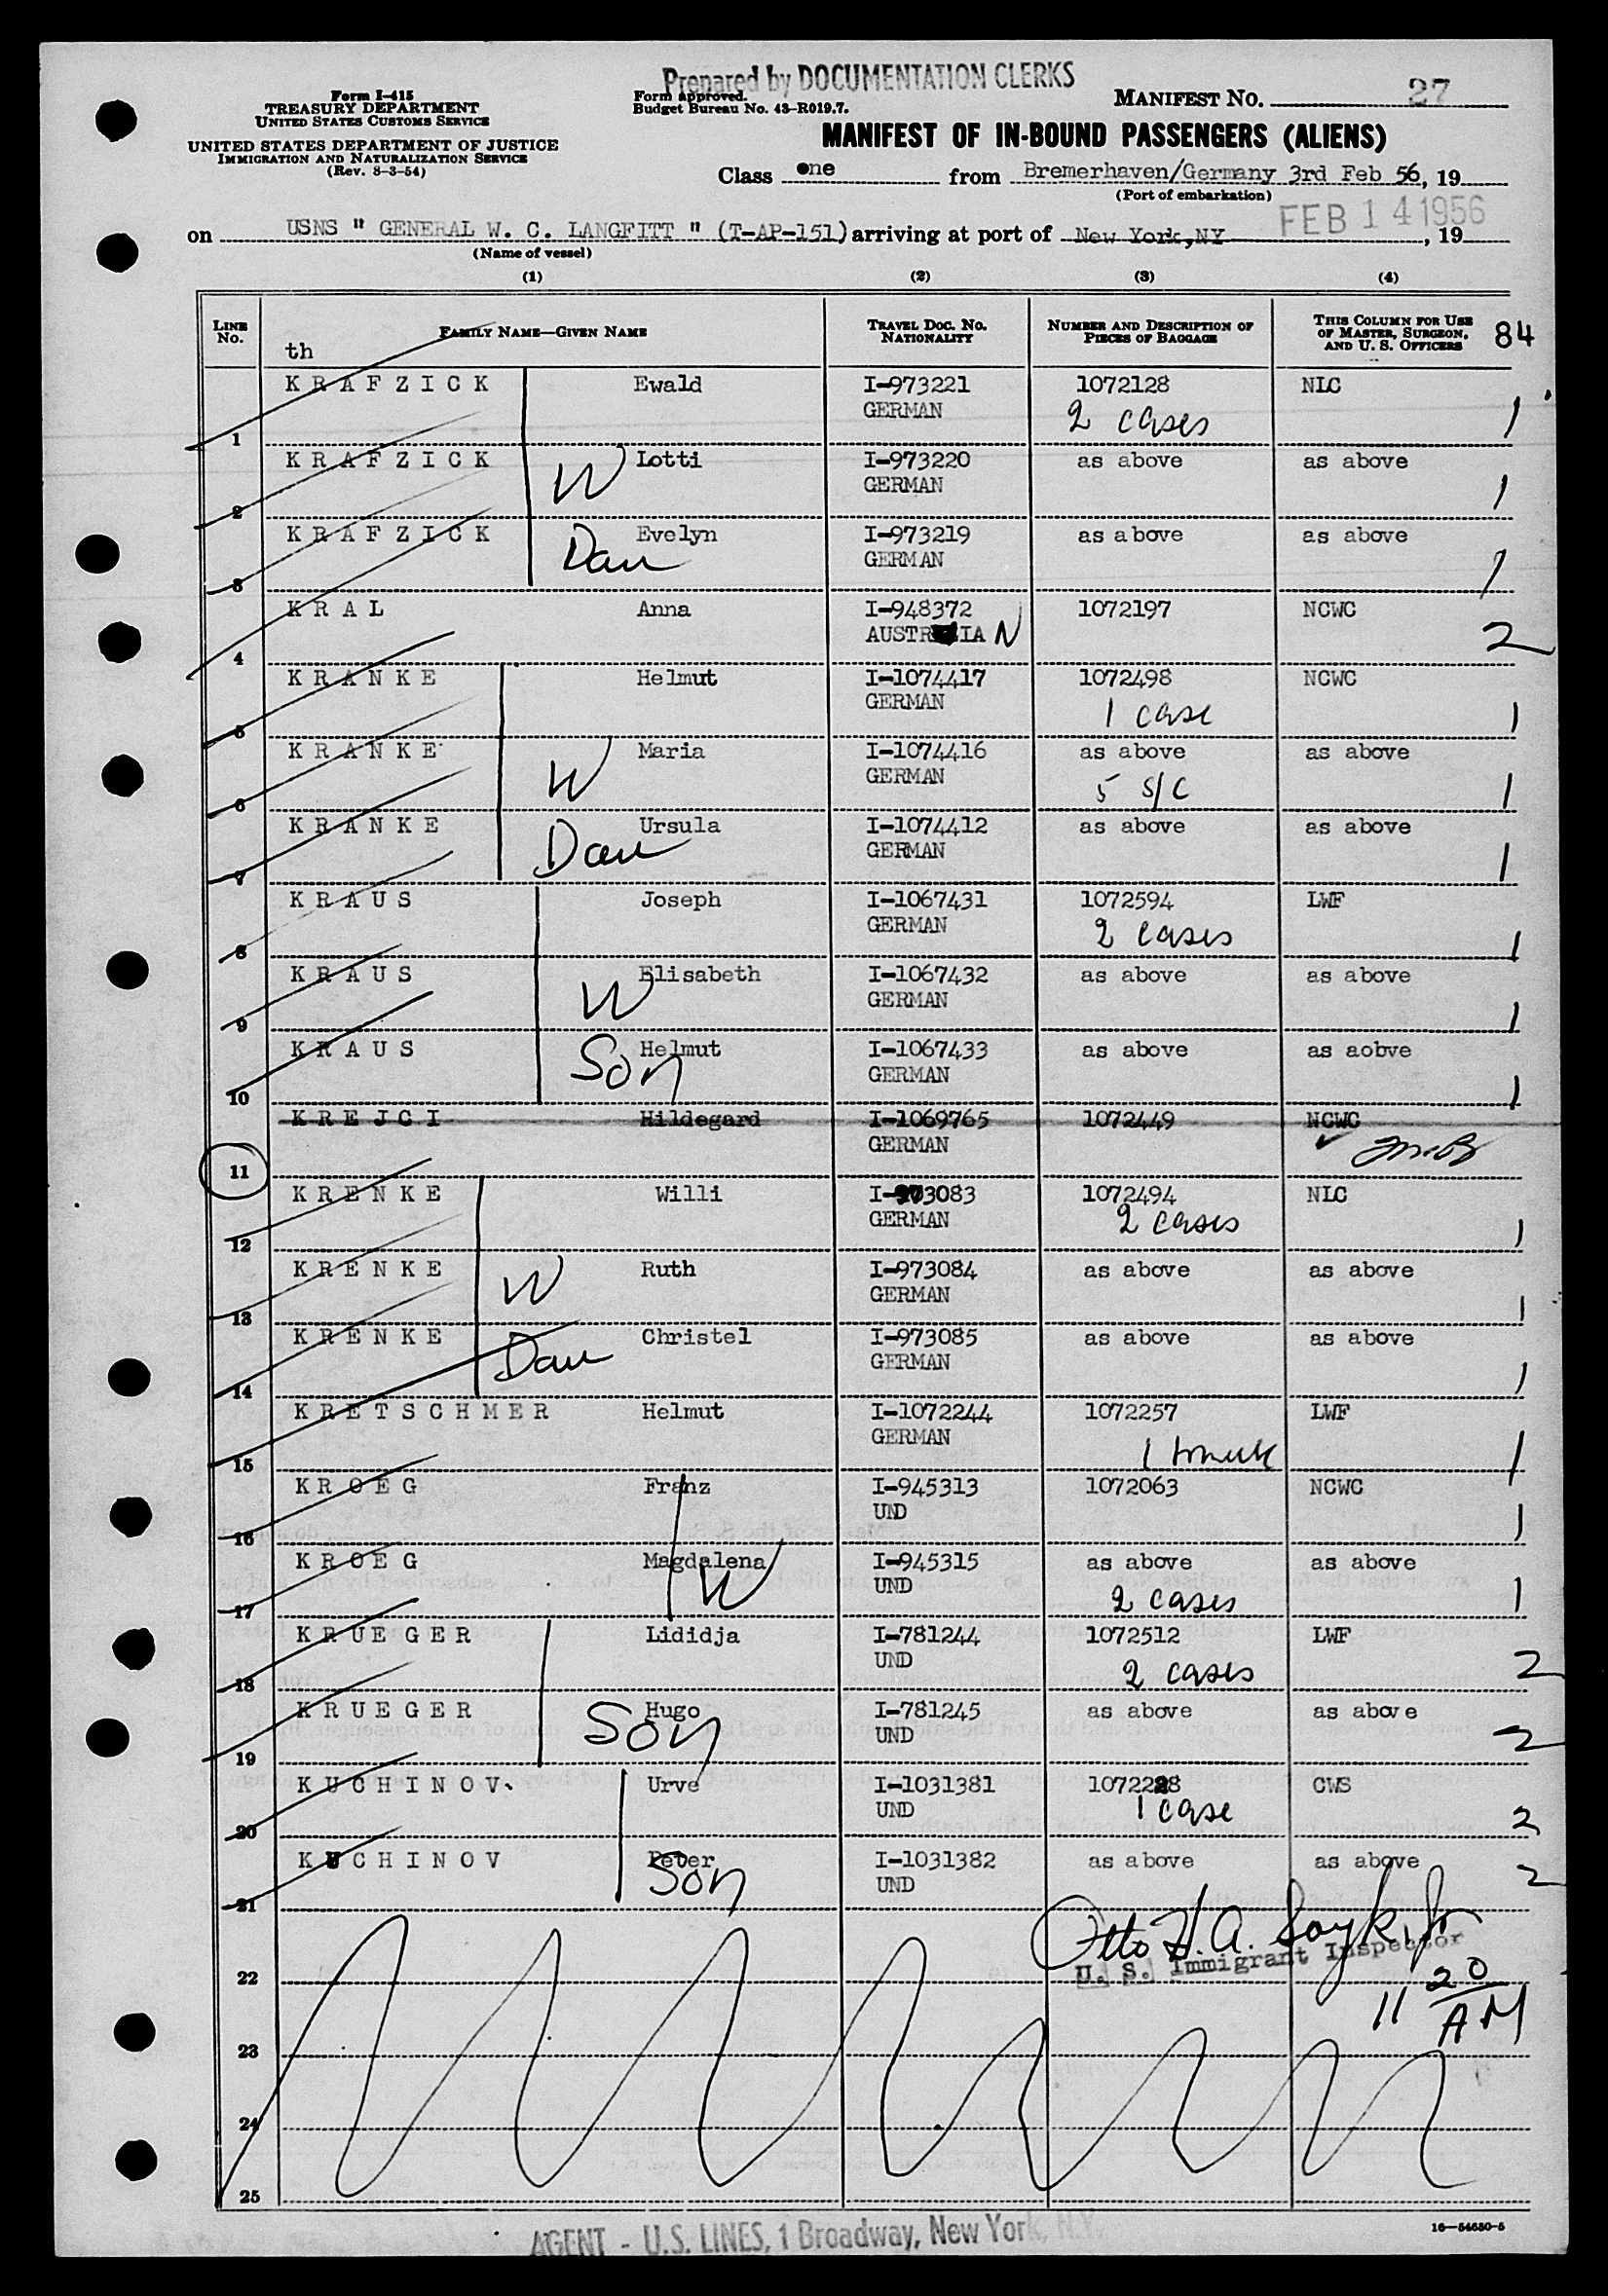 Prepared by DOCUMENTATION CLERKS
Form I-415
TREASURY DEPARTMENT
UNITED STATES CUSTOMS SERVICE
UNITED STATES DEPARTMENT OF JUSTICE
IMMIGRATION AND NATURALIZATION SERVICE
(Rev. 8-3-54)
Form approved.
Budget Bureau No. 43-R019.7.
MANIFEST No. 27
MANIFEST OF IN-BOUND PASSENGERS (ALIENS)
Class one from Bremerhaven/Germany 3rd Feb 56, 19
(Port of embarkation)
on USNS " GENERAL W. C. LANGFITT " (T-AP-151) arriving at port of New York,NY FEB 14 1956, 19
(Name of vessel)
(1) (2) (3) (4)
LINE No. FAMILY NAME—GIVEN NAME TRAVEL DOC. NO. NATIONALITY NUMBER AND DESCRIPTION OF PIECES OF BAGGAGE THIS COLUMN FOR USE OF MASTER, SURGEON, AND U. S. OFFICERS 84
th
KRAFZICK Ewald I-973221 1072128 NLC
1 GERMAN 2 cases 1
KRAFZICK W Lotti I-973220 as above as above
2 GERMAN 1
KRAFZICK Dau Evelyn I-973219 as above as above
3 GERMAN 1
KRAL Anna I-948372 1072197 NCWC
4 AUSTRIA N 2
KRANKE Helmut I-1074417 1072498 NCWC
5 GERMAN 1 case 1
KRANKE W Maria I-1074416 as above as above
6 GERMAN 5 S/C 1
KRANKE Dau Ursula I-1074412 as above as above
7 GERMAN 1
KRAUS Joseph I-1067431 1072594 LWF
8 GERMAN 2 cases 1
KRAUS W Elisabeth I-1067432 as above as above
9 GERMAN 1
KRAUS Son Helmut I-1067433 as above as aobve
10 GERMAN 1
KREJCI Hildegard I-1069765 1072449 NCWC
11 GERMAN ✓
KRENKE Willi I-973083 1072494 NLC
12 GERMAN 2 cases 1
KRENKE W Ruth I-973084 as above as above
13 GERMAN 1
KRENKE Dau Christel I-973085 as above as above
14 GERMAN 1
KRETSCHMER Helmut I-1072244 1072257 LWF
15 GERMAN 1 trunk 1
KROEG Franz I-945313 1072063 NCWC
16 UND 1
KROEG Magdalena W I-945315 as above as above
17 UND 2 cases 1
KRUEGER Lididja I-781244 1072512 LWF
18 UND 2 cases 2
KRUEGER Son Hugo I-781245 as above as above
19 UND 2
KUCHINOV Urve I-1031381 1072228 CWS
20 UND 1 case 2
KUCHINOV Peter Son I-1031382 as above as above
21 UND 2
Otto H.A. Jr
U. S. Immigrant Inspector
22
11 20 AM
23
24
25
16—54650-5
AGENT - U.S. LINES, 1 Broadway, New York, N.Y.